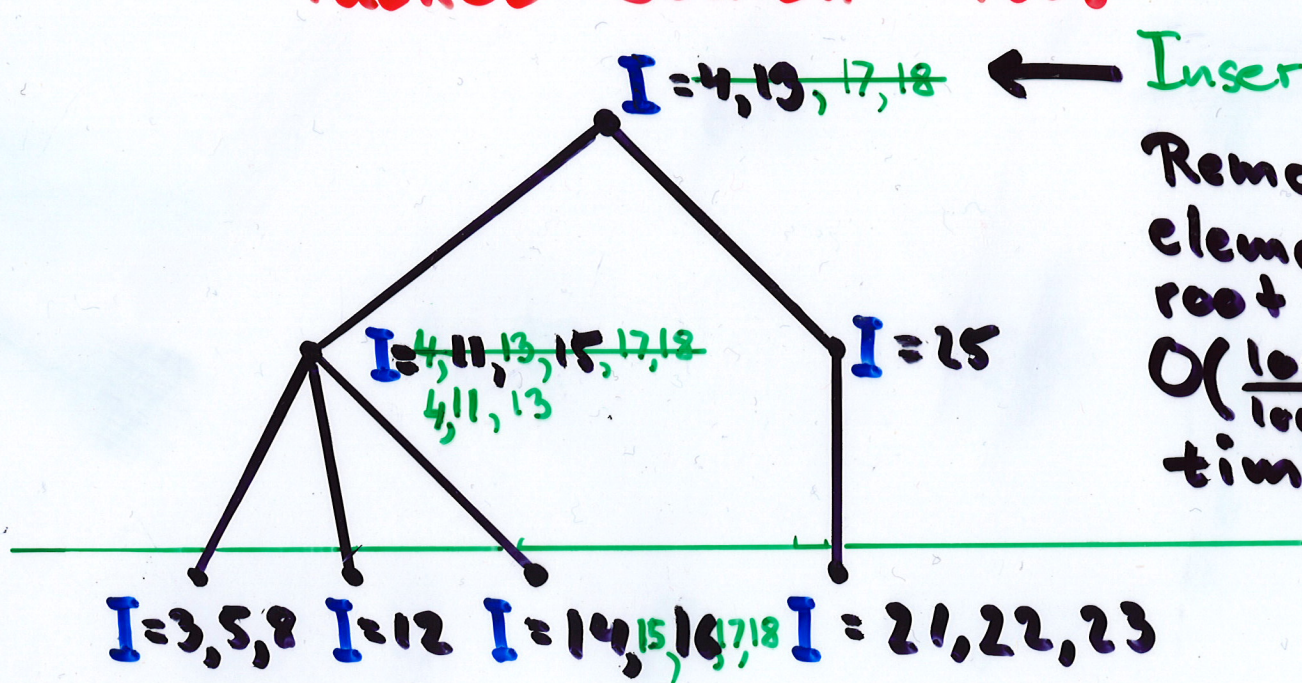 I = 4, 19, 17, 18
Inser
Reme
eleme
root
O(
tim
I = 4, 11, 13, 15, 17, 18
4, 11, 13
I = 25
I = 3, 5, 8
I = 12
I = 14, 15, 16, 17, 18
I = 21, 22, 23